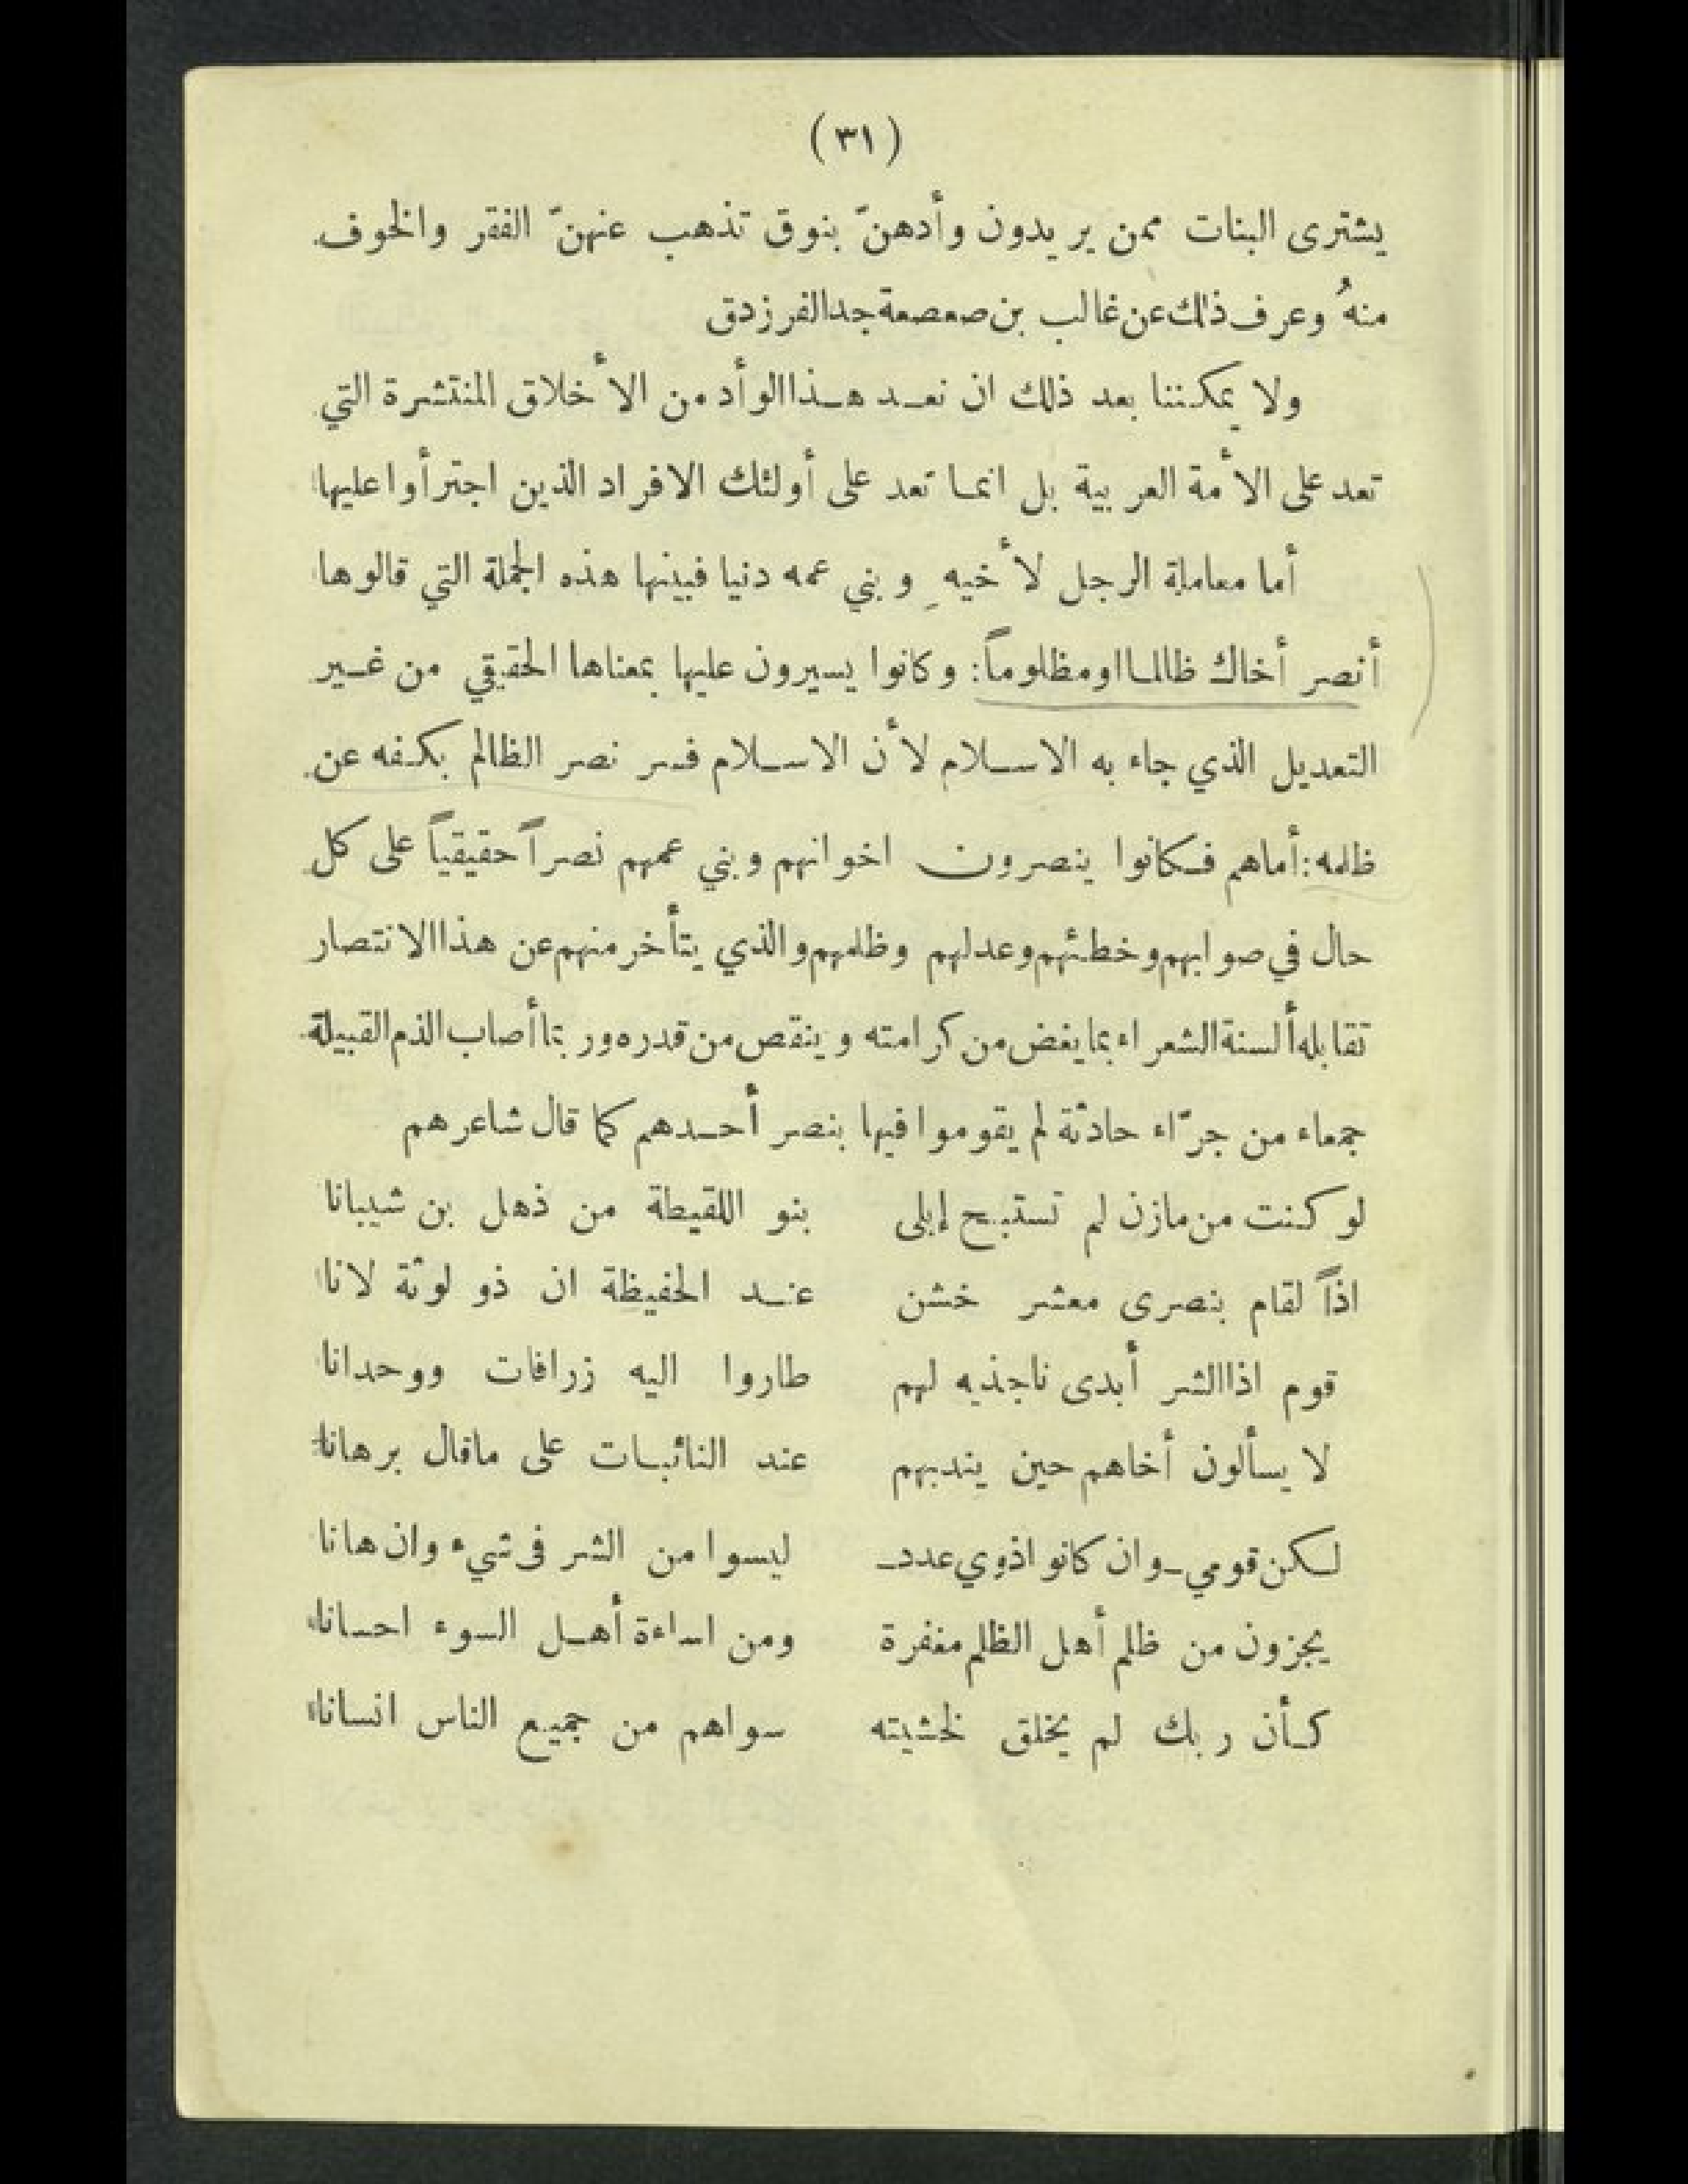 (٣١)
يشترى البنات ممن يريدون وأدهنّ بنوق تذهب عنهنّ الفقر والخوف
منهُ وعرف ذلك عن غالب بن صعصعة جد الفرزدق
ولا يمكننا بعد ذلك ان نعد هذا الوأد من الأخلاق المنتشرة التي
تعد على الأمة العربية بل انما تعد على أولئك الافراد الذين اجترأوا عليها
أما معاملة الرجل لأخيهِ وبني عمه دنيا فبينها هذه الجملة التي قالوها
أنصر أخاك ظالما او مظلوماً: وكانوا يسيرون عليها بمعناها الحقيقي من غير
التعديل الذي جاء به الاسلام لأن الاسلام فسر نصر الظالم بكفه عن
ظلمه: أما هم فكانوا ينصرون اخوانهم وبني عمهم نصراً حقيقياً على كل
حال في صوابهم وخطئهم وعدلهم وظلمهم والذي يتأخر منهم عن هذا الانتصار
تقابله ألسنة الشعراء بما يغض من كرامته وينقص من قدره وربما أصاب الذم القبيلة
جمعاء من جرّاء حادثة لم يقوموا فيها بنصر أحدهم كما قال شاعرهم
لو كنت من مازن لم تستبح إبلى بنو اللقيطة من ذهل بن شيبانا
اذاً لقام بنصرى معشر خشن عند الحفيظة ان ذو لوثة لانا
قوم اذا الشر أبدى ناجذيه لهم طاروا اليه زرافات ووحدانا
لا يسألون أخاهم حين يندبهم عند النائبات على ماقال برهانا
لكن قومي ـ وان كانوا ذوي عدد ـ ليسوا من الشر فى شيء وان هانا
يجزون من ظلم أهل الظلم مغفرة ومن اساءة أهل السوء احسانا
كأن ربك لم يخلق لخشيته سواهم من جميع الناس انسانا